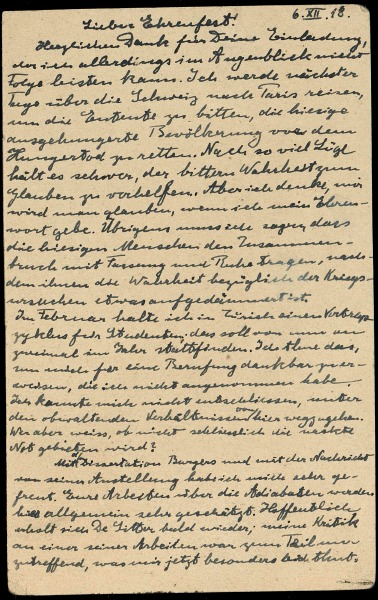 6. XII. 18.
Lieber Ehrenfest!
Herzlichen Dank für Deine Einladung,
der ich allerdings im Augenblick nicht
Folge leisten kann. Ich werde nächster
Tage über die Schweiz nach Paris reisen,
um die Entente zu bitten, die hiesige
ausgehungerte Bevölkerung vor dem
Hungertod zu retten. Nach so viel Lüge
hält es schwer, der bittern Wahrheit zum
Glauben zu verhelfen. Aber ich denke, mir
wird man glauben, wenn ich mein Ehren-
wort gebe. Übrigens muss ich sagen, dass
die hiesigen Menschen den Zusammen-
bruch mit Fassung und Ruhe tragen, nach-
dem ihnen die Wahrheit bezüglich der Kriegs-
ursachen etwas aufgedämmert ist.
Im Februar halte ich in Zürich einen Vortrags-
zyklus für Studenten; das soll von nun an
zweimal im Jahr stattfinden. Ich thue das,
um mich für eine Berufung dankbar zu er-
weisen, die ich nicht angenommen habe.
Ich konnte mich nicht entschliessen, unter
den obwaltenden Verhältnissen von hier wegzugehen.
Wer aber weiss, ob nicht schliesslich die nackte
Not gebieten wird?
Mit Dissertation Burgers und mit der Nachricht
von seiner Anstellung hab ich mich sehr ge-
freut. Eure Arbeiten über die Adiabaten werden
hier allgemein sehr geschätzt. Hoffentlich
erholt sich De Sitter bald wieder; meine Kritik
an einer seiner Arbeiten war zum Teil un-
zutreffend, was mir jetzt besonders leid thut.